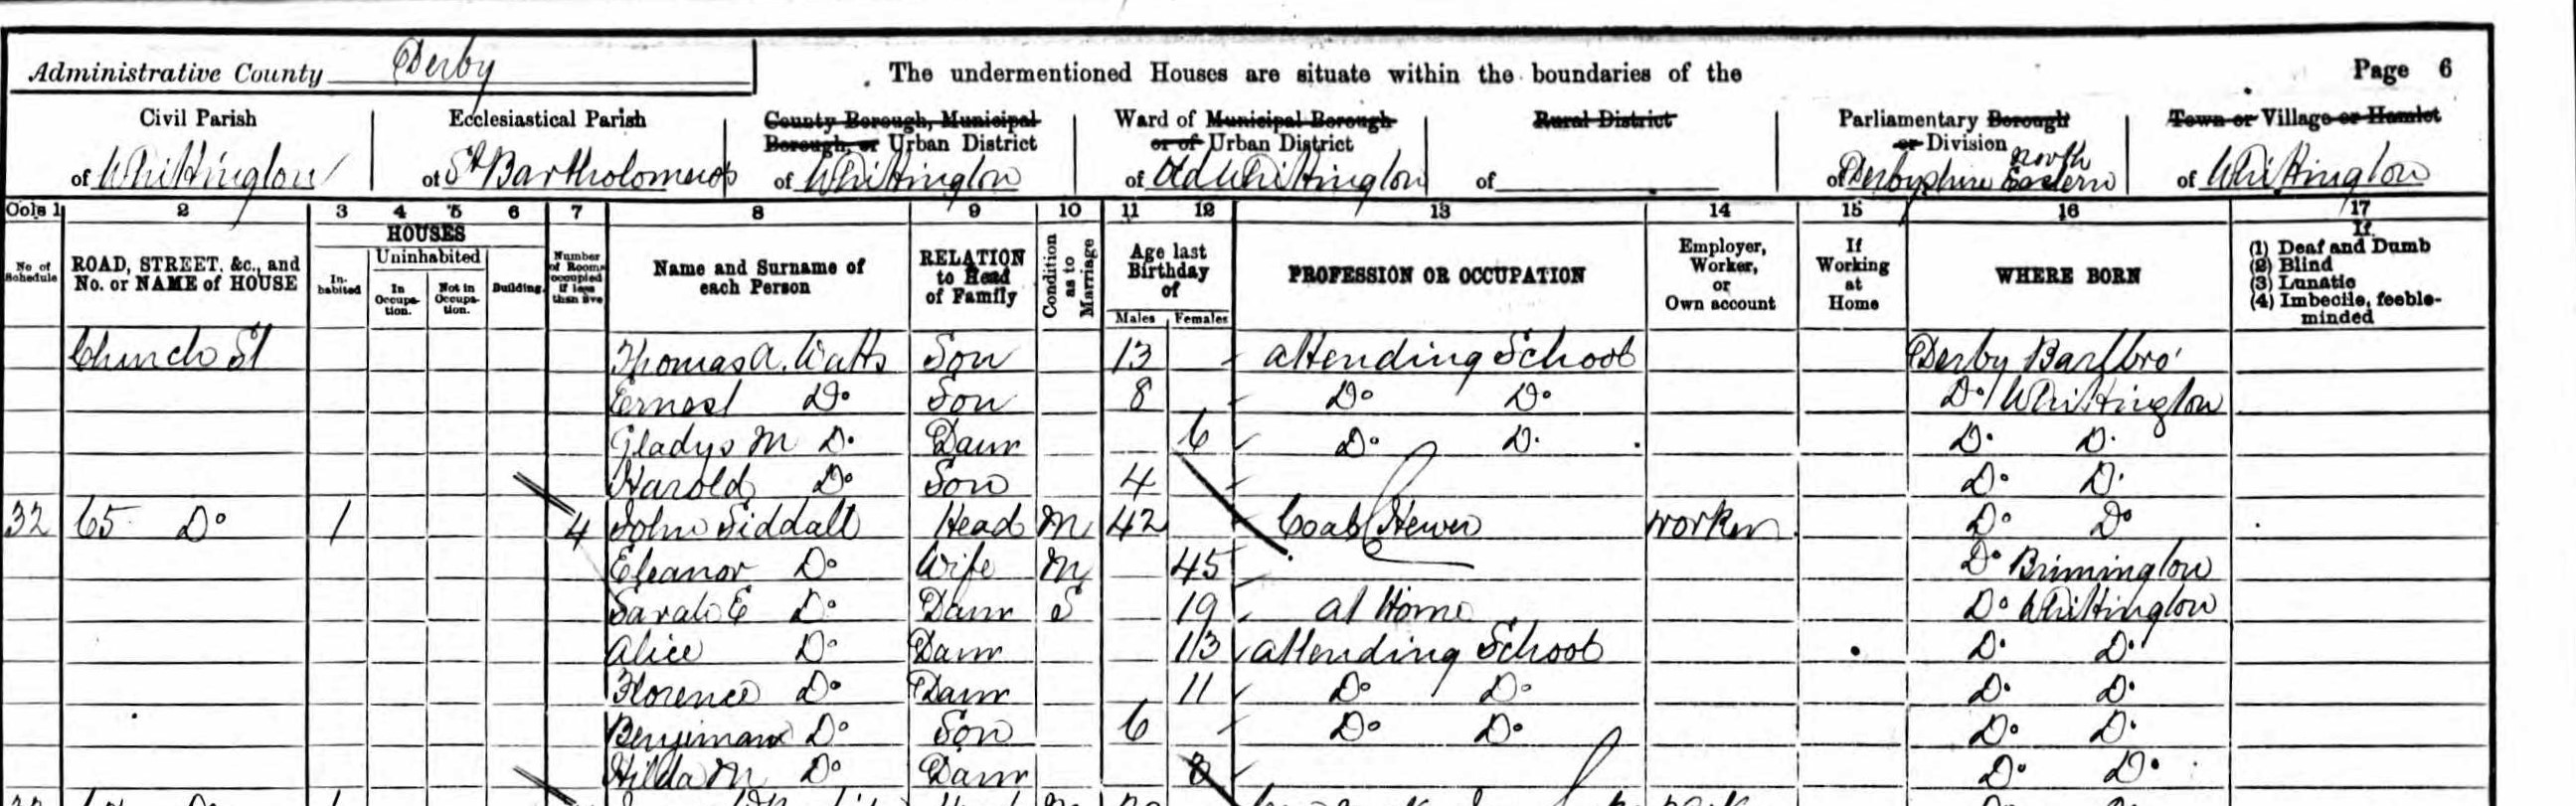 Administrative County Derby
The undermentioned Houses are situate within the boundaries of the
Page 6
Civil Parish of Whittington
Ecclesiastical Parish of St Bartholomews
County Borough, Municipal Borough, or Urban District of Whittington
Ward of Municipal Borough or of Urban District of Old Whittington
Rural District of
Parliamentary Borough or Division of Derbyshire North Eastern
Town or Village or Hamlet of Whittington
Cols 1 2 3 4 5 6 7 8 9 10 11 12 13 14 15 16 17
No of Schedule
ROAD, STREET, &c., and No. or NAME of HOUSE
HOUSES
In-habited
Uninhabited
In Occupa-tion.
Not in Occupa-tion.
Building.
Number of Rooms occupied if less than five
Name and Surname of each Person
RELATION to Head of Family
Condition as to Marriage
Age last Birthday of
Males Females
PROFESSION OR OCCUPATION
Employer, Worker, or Own account
If Working at Home
WHERE BORN
If
(1) Deaf and Dumb
(2) Blind
(3) Lunatic
(4) Imbecile, feeble-minded
Church St Thomas A. Watts Son 13 attending School Derby Barlbro'
Ernest Do Son 8 Do Do Do Whittington
Gladys M Do Daur 6 Do Do Do Do
Harold Do Son 4 Do Do
32 65 Do 1 4 John Siddall Head M 42 Coal Hewer worker Do Do
Eleanor Do Wife M 45 Do Brimington
Sarah E Do Daur S 19 at Home Do Whittington
Alice Do Daur 13 attending School Do Do
Florence Do Daur 11 Do Do Do Do
Benjiman Do Son 6 Do Do Do Do
Hilda M Do Daur Do Do